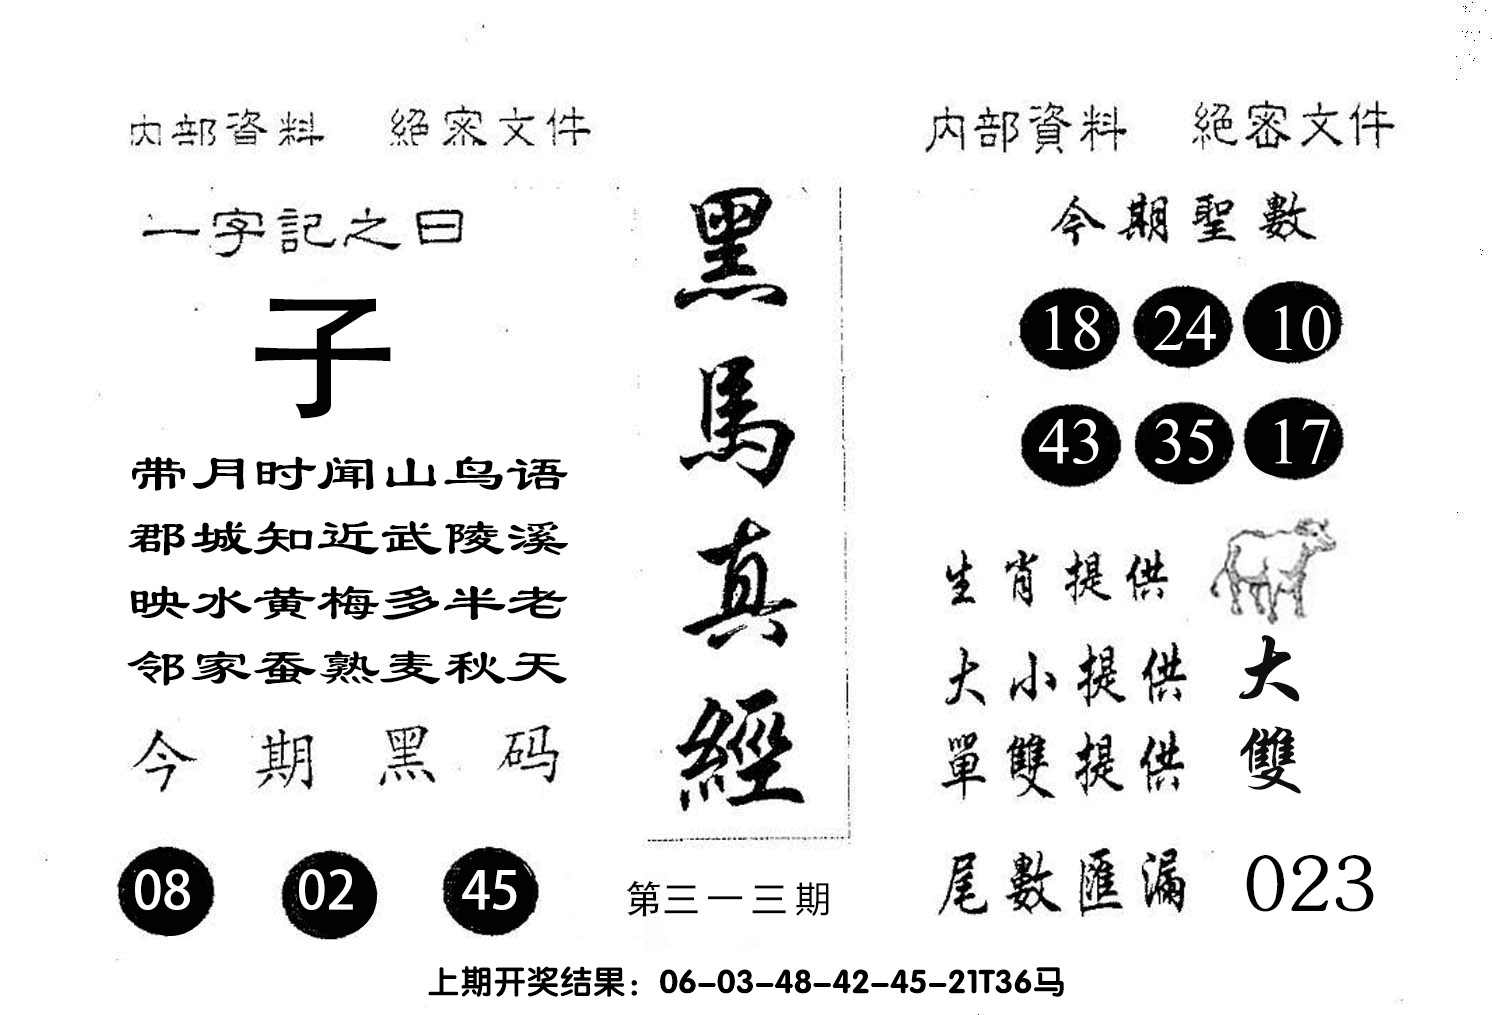 内部資料 絕密文件
一字記之曰
子
带月时闻山鸟语
郡城知近武陵溪
映水黄梅多半老
邻家蚕熟麦秋天
今期黑码
08 02 45
黑馬真經
第三一三期
内部資料 絕密文件
今期聖數
18 24 10
43 35 17
生肖提供
大小提供 大
單雙提供 雙
尾數匯漏 023
上期开奖结果：06-03-48-42-45-21T36马